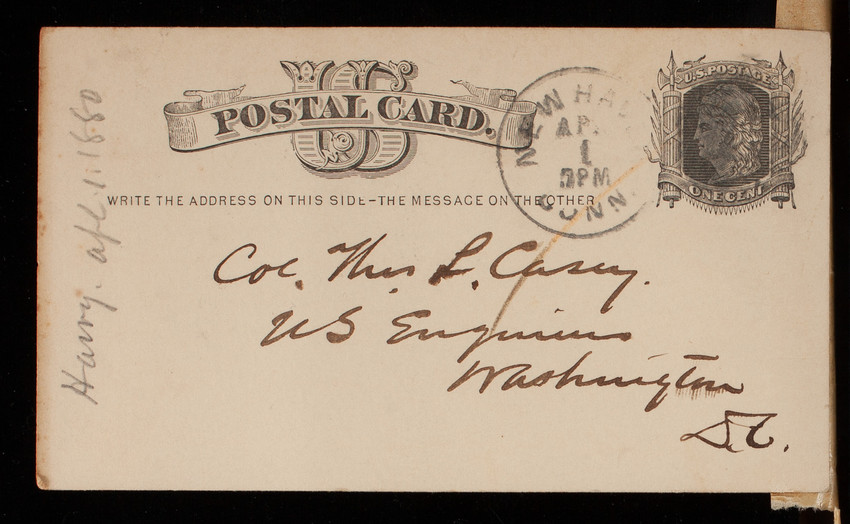 US
POSTAL CARD.
WRITE THE ADDRESS ON THIS SIDE-THE MESSAGE ON THE OTHER
NEW HA
AP.
1
PM
CONN.
U.S. POSTAGE
ONE CENT
Col. Thos L. Casey.
US Engineers
Washington
D.C.
Harry. apl. 1. 1880